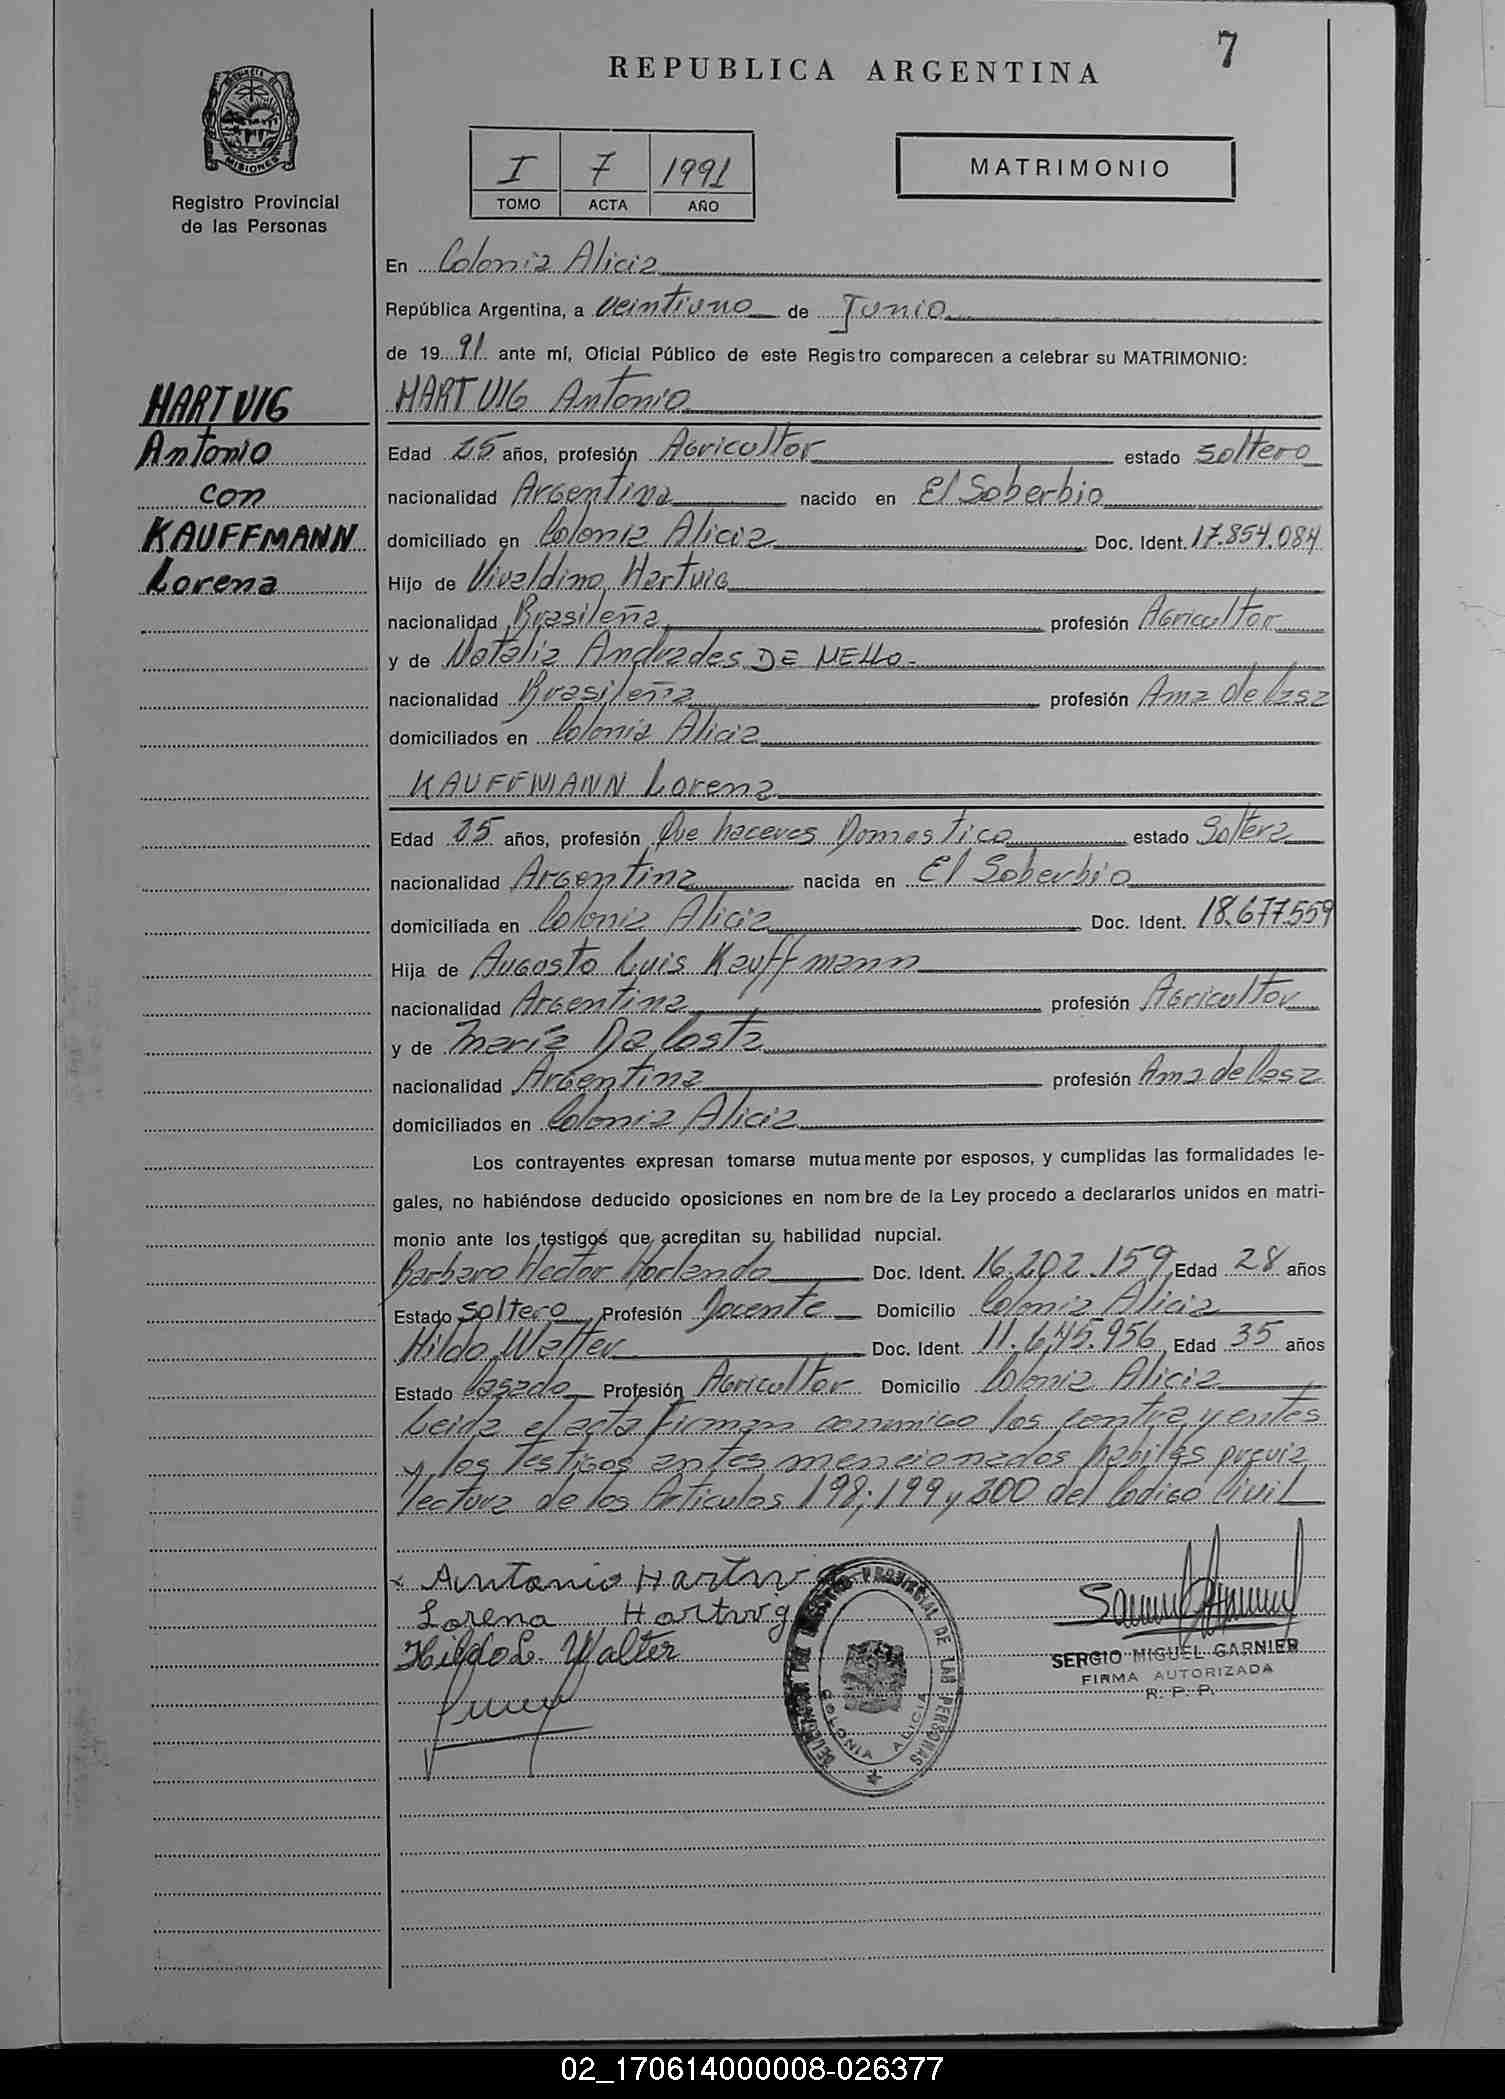 7
REPUBLICA ARGENTINA
MISIONES
Registro Provincial
de las Personas
I 7 1991
TOMO ACTA AÑO
MATRIMONIO
En Colonia Alicia
República Argentina, a veintiuno de Junio
de 1991 ante mí, Oficial Público de este Registro comparecen a celebrar su MATRIMONIO:
HARTVIG
Antonio
con
KAUFFMANN
Lorena
HARTVIG Antonio
Edad 25 años, profesión Agricultor estado Soltero
nacionalidad Argentina nacido en El Soberbio
domiciliado en Colonia Alicia Doc. Ident. 17.854.084
Hijo de Vivaldino Hartvig
nacionalidad Brasileña profesión Agricultor
y de Natalia Andrades DE MELLO.
nacionalidad Brasileña profesión Ama de Casa
domiciliados en Colonia Alicia
KAUFFMANN Lorena
Edad 25 años, profesión Que haceres Domestico estado Soltera
nacionalidad Argentina nacida en El Soberbio
domiciliada en Colonia Alicia Doc. Ident. 18.677.559
Hija de Augosto Luis Kauffmann
nacionalidad Argentina profesión Agricultor
y de María Da Costa
nacionalidad Argentina profesión Ama de Casa
domiciliados en Colonia Alicia
Los contrayentes expresan tomarse mutuamente por esposos, y cumplidas las formalidades le-
gales, no habiéndose deducido oposiciones en nombre de la Ley procedo a declararlos unidos en matri-
monio ante los testigos que acreditan su habilidad nupcial.
Barbaro Hector Horlando Doc. Ident. 16.202.159 Edad 28 años
Estado Soltero Profesión Docente Domicilio Colonia Alicia
Hildo Walter Doc. Ident. 11.645.956 Edad 35 años
Estado Casado Profesión Agricultor Domicilio Colonia Alicia
Leida el acta firman conmigo los contrayentes
y los testigos antes mencionados habiles previa
lectura de los Articulos 198; 199 y 200 del Codigo Civil
Antonio Hartvig
Lorena Hartwig
Hildo L. Walter
DEL REGISTRO PROVINCIAL DE LAS PERSONAS
COLONIA ALICIA
SERGIO MIGUEL GARNIER
FIRMA AUTORIZADA
R. P. P.
02_170614000008-026377